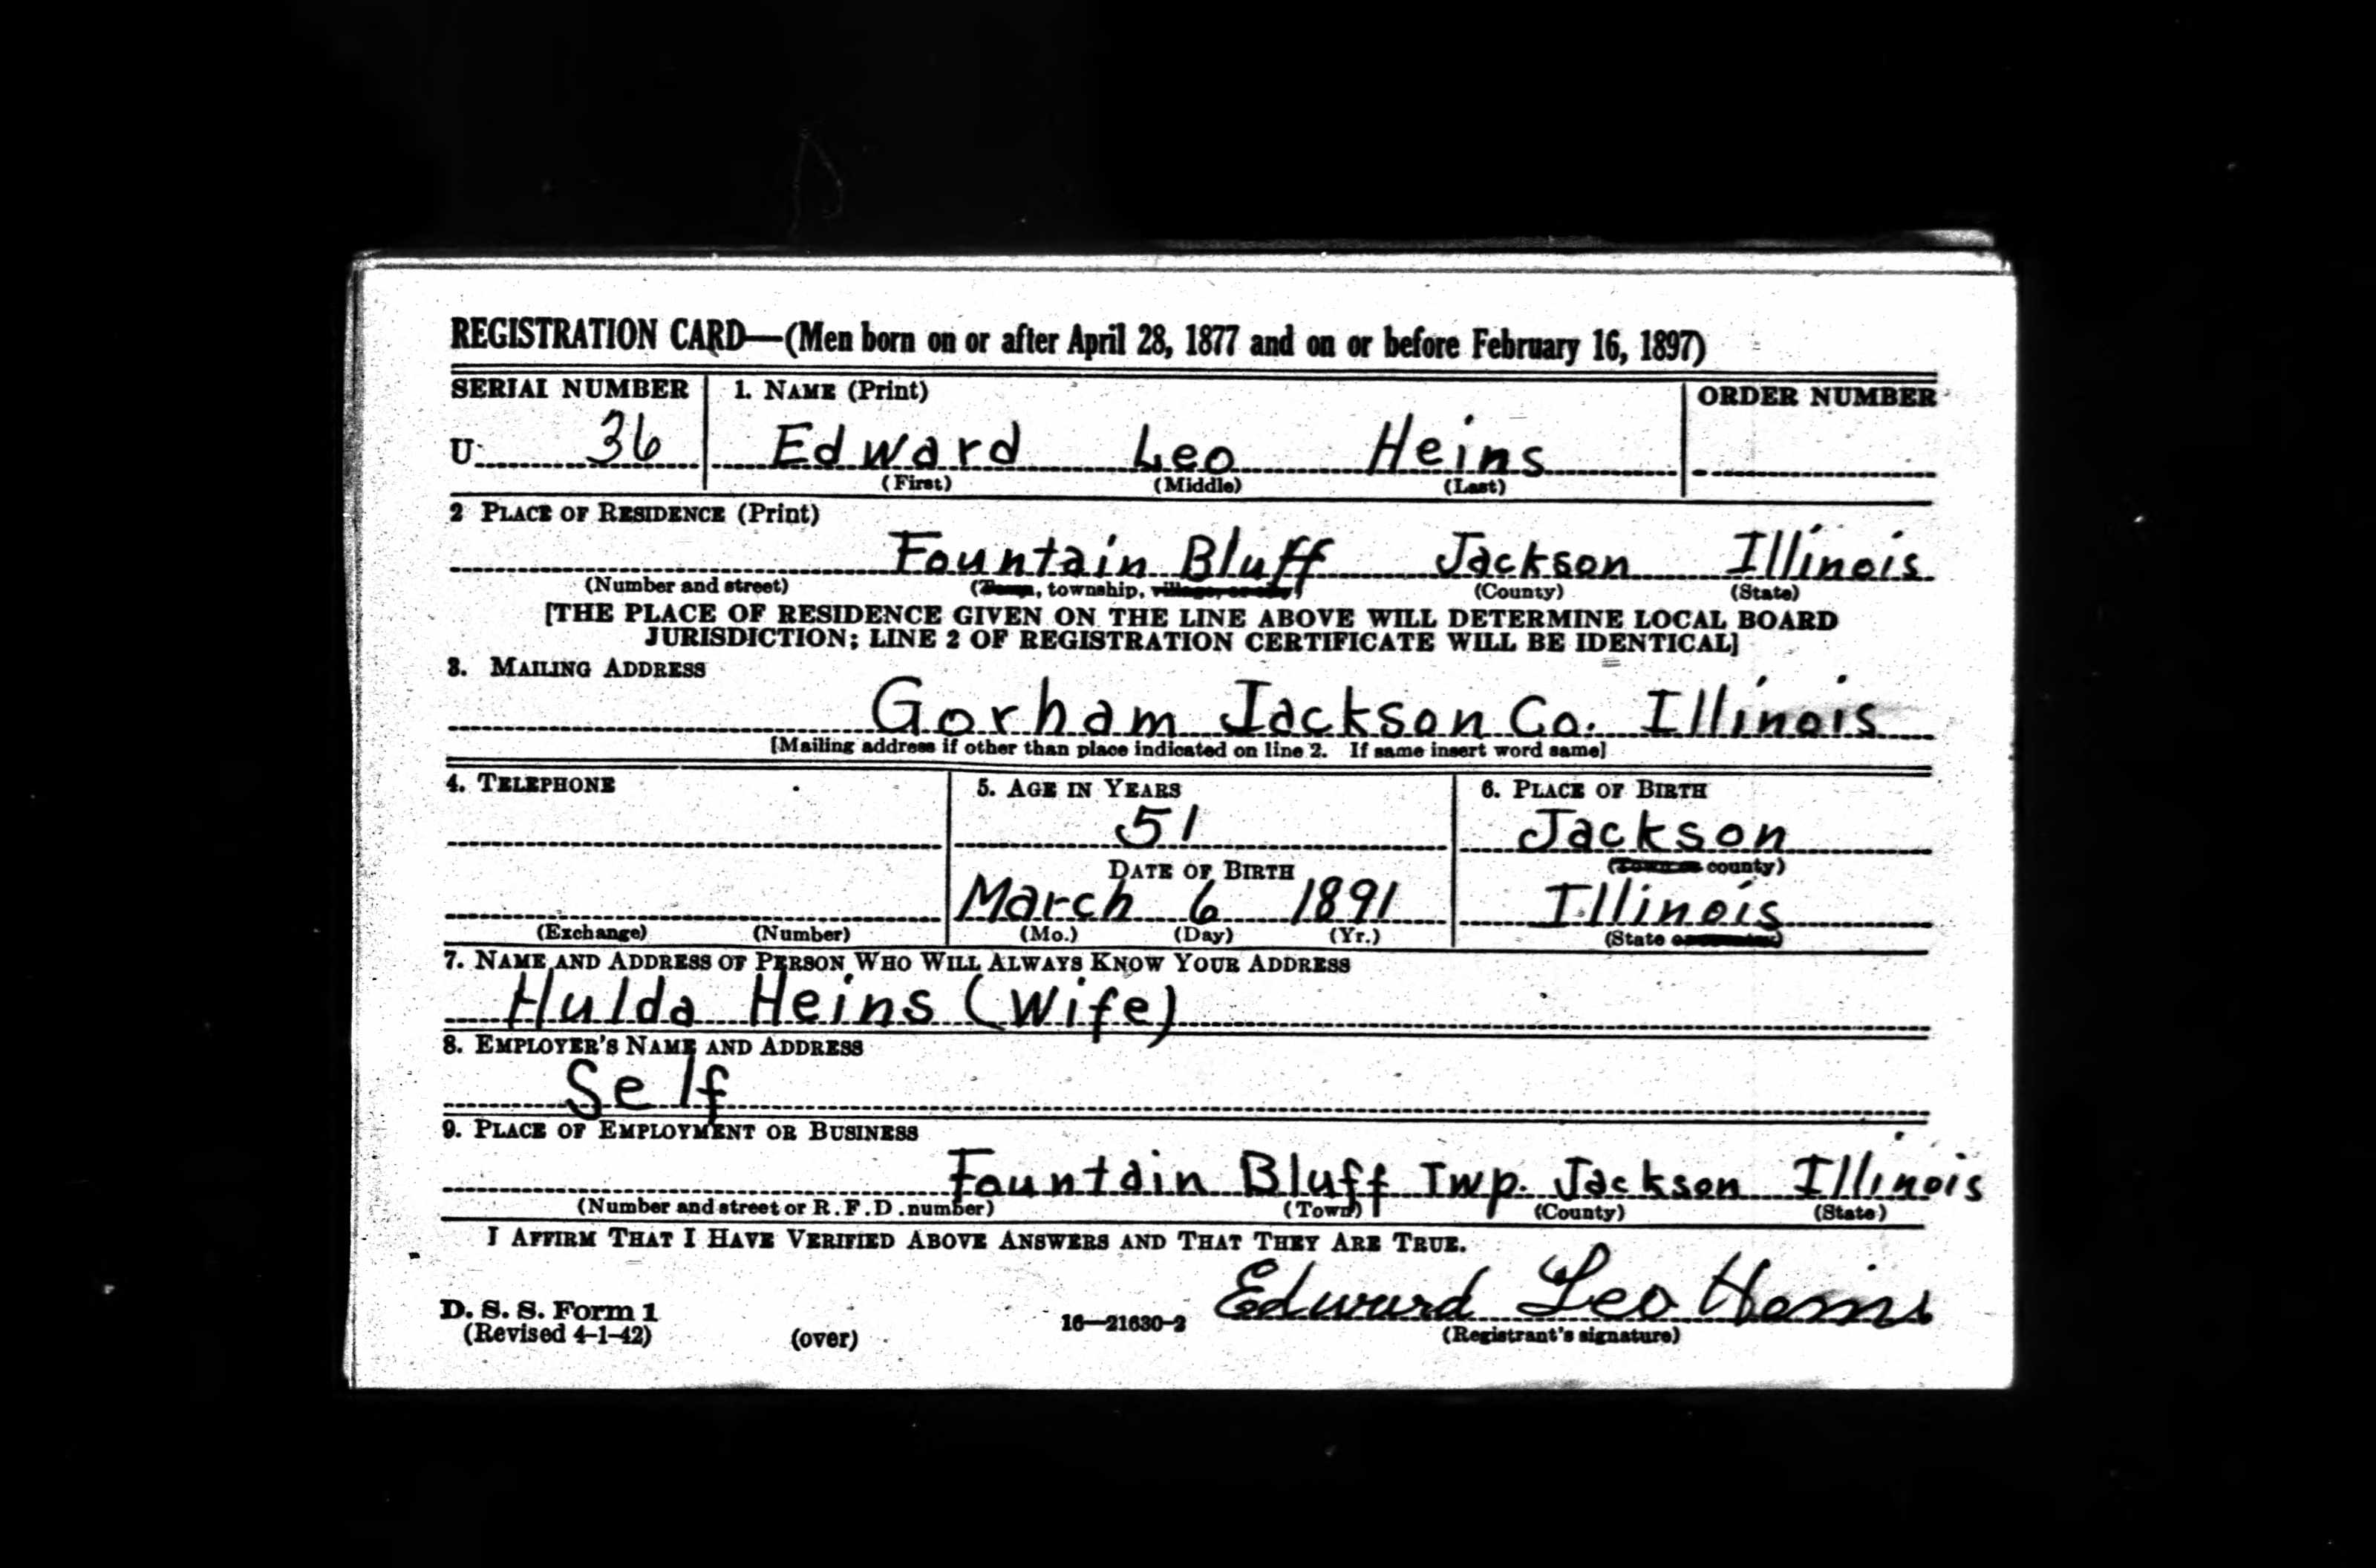 REGISTRATION CARD—(Men born on or after April 28, 1877 and on or before February 16, 1897)
SERIAL NUMBER 1. NAME (Print) ORDER NUMBER
U 36 Edward Leo Heins
(First) (Middle) (Last)
2 PLACE OF RESIDENCE (Print)
Fountain Bluff Jackson Illinois
(Number and street) (Town, township, village, or city) (County) (State)
[THE PLACE OF RESIDENCE GIVEN ON THE LINE ABOVE WILL DETERMINE LOCAL BOARD
JURISDICTION; LINE 2 OF REGISTRATION CERTIFICATE WILL BE IDENTICAL]
3. MAILING ADDRESS
Gorham Jackson Co. Illinois
[Mailing address if other than place indicated on line 2. If same insert word same]
4. TELEPHONE 5. AGE IN YEARS 6. PLACE OF BIRTH
51 Jackson
DATE OF BIRTH (county)
March 6 1891 Illinois
(Exchange) (Number) (Mo.) (Day) (Yr.) (State
7. NAME AND ADDRESS OF PERSON WHO WILL ALWAYS KNOW YOUR ADDRESS
Hulda Heins (Wife)
8. EMPLOYER'S NAME AND ADDRESS
Self
9. PLACE OF EMPLOYMENT OR BUSINESS
Fountain Bluff Twp. Jackson Illinois
(Number and street or R.F.D. number) (Town) (County) (State)
I AFFIRM THAT I HAVE VERIFIED ABOVE ANSWERS AND THAT THEY ARE TRUE.
Edward Leo Heins
D. S. S. Form 1
(Revised 4-1-42) (over) 16—21630-2 (Registrant's signature)